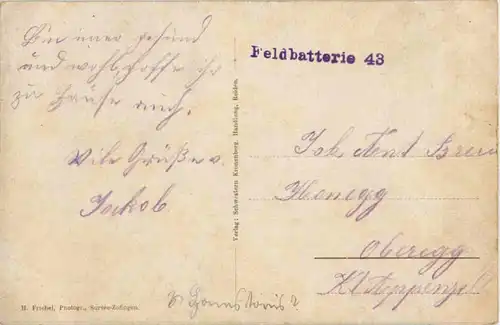 Bin imer gesund
und wohl, hoffe ihr
zu Hause auch.
Vile Grüße v.
Jakob.
Feldbatterie 43
Verlag: Schwestern Kronenberg, Handlung, Reiden.
Joh. Ant
Honegg
Oberegg
Kt Appenzell
H. Froebel, Photogr., Buchs-Zofingen.